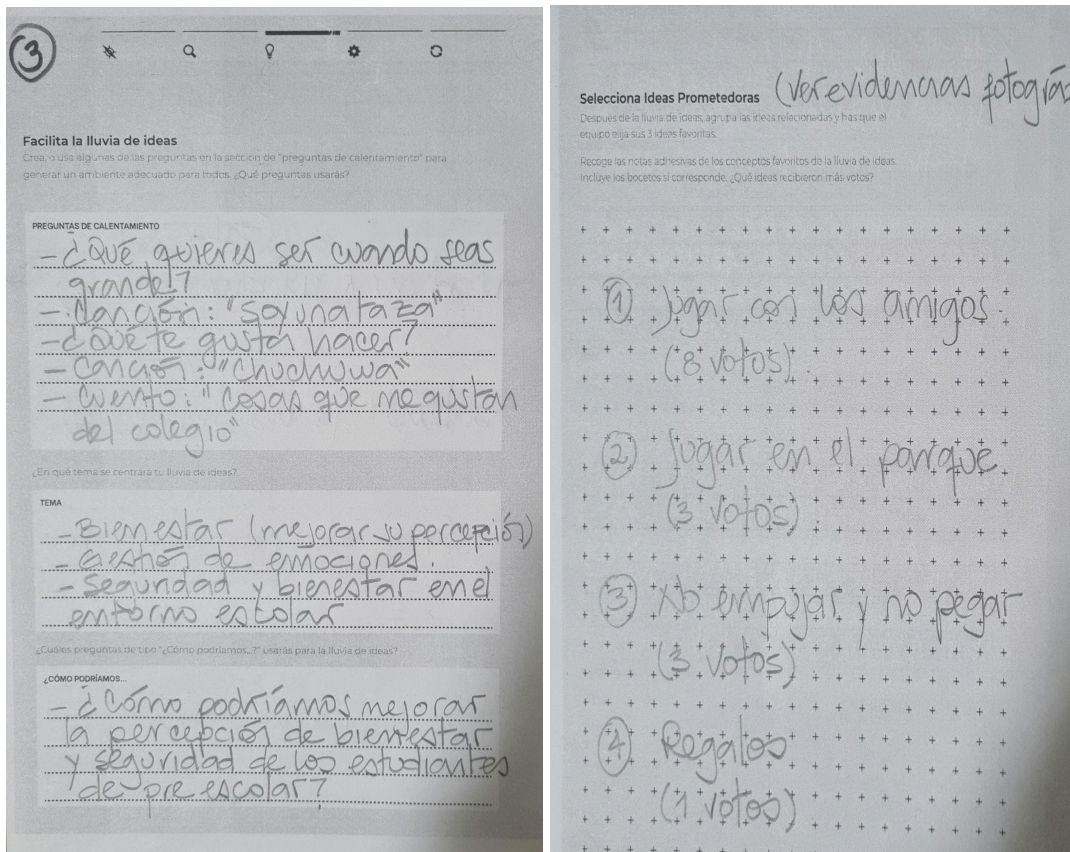 3
Facilita la lluvia de ideas
Crea, o usa algunas de las preguntas en la sección de "preguntas de calentamiento" para
generar un ambiente adecuado para todos. ¿Qué preguntas usarás?
PREGUNTAS DE CALENTAMIENTO
- ¿Qué quieres ser cuando seas
grande?
- Canción: "Soy una taza"
- ¿Qué te gusta hacer?
- Canción: "Chuchuwa"
- Cuento: "Cosas que me gustan
del colegio"
¿En qué tema se centrará tu lluvia de ideas?
TEMA
- Bienestar (mejorar su percepción)
- Gestión de emociones.
- Seguridad y bienestar en el
entorno escolar
¿Cuáles preguntas de tipo "¿Cómo podríamos...?" usarás para la lluvia de ideas?
¿CÓMO PODRÍAMOS...
- ¿Cómo podríamos mejorar
la percepción de bienestar
y seguridad de los estudiantes
de preescolar?
Selecciona Ideas Prometedoras (Ver evidencias fotográ
Después de la lluvia de ideas, agrupa las ideas relacionadas y has que el
equipo elija sus 3 ideas favoritas.
Recoge las notas adhesivas de los conceptos favoritos de la lluvia de ideas.
Incluye los bocetos si corresponde. ¿Qué ideas recibieron más votos?
1 Jugar con los amigos.
(8 votos).
2 Jugar en el parque
(3 votos).
3 No empujar y no pegar
(3 votos).
4 Regalos
(1 votos)